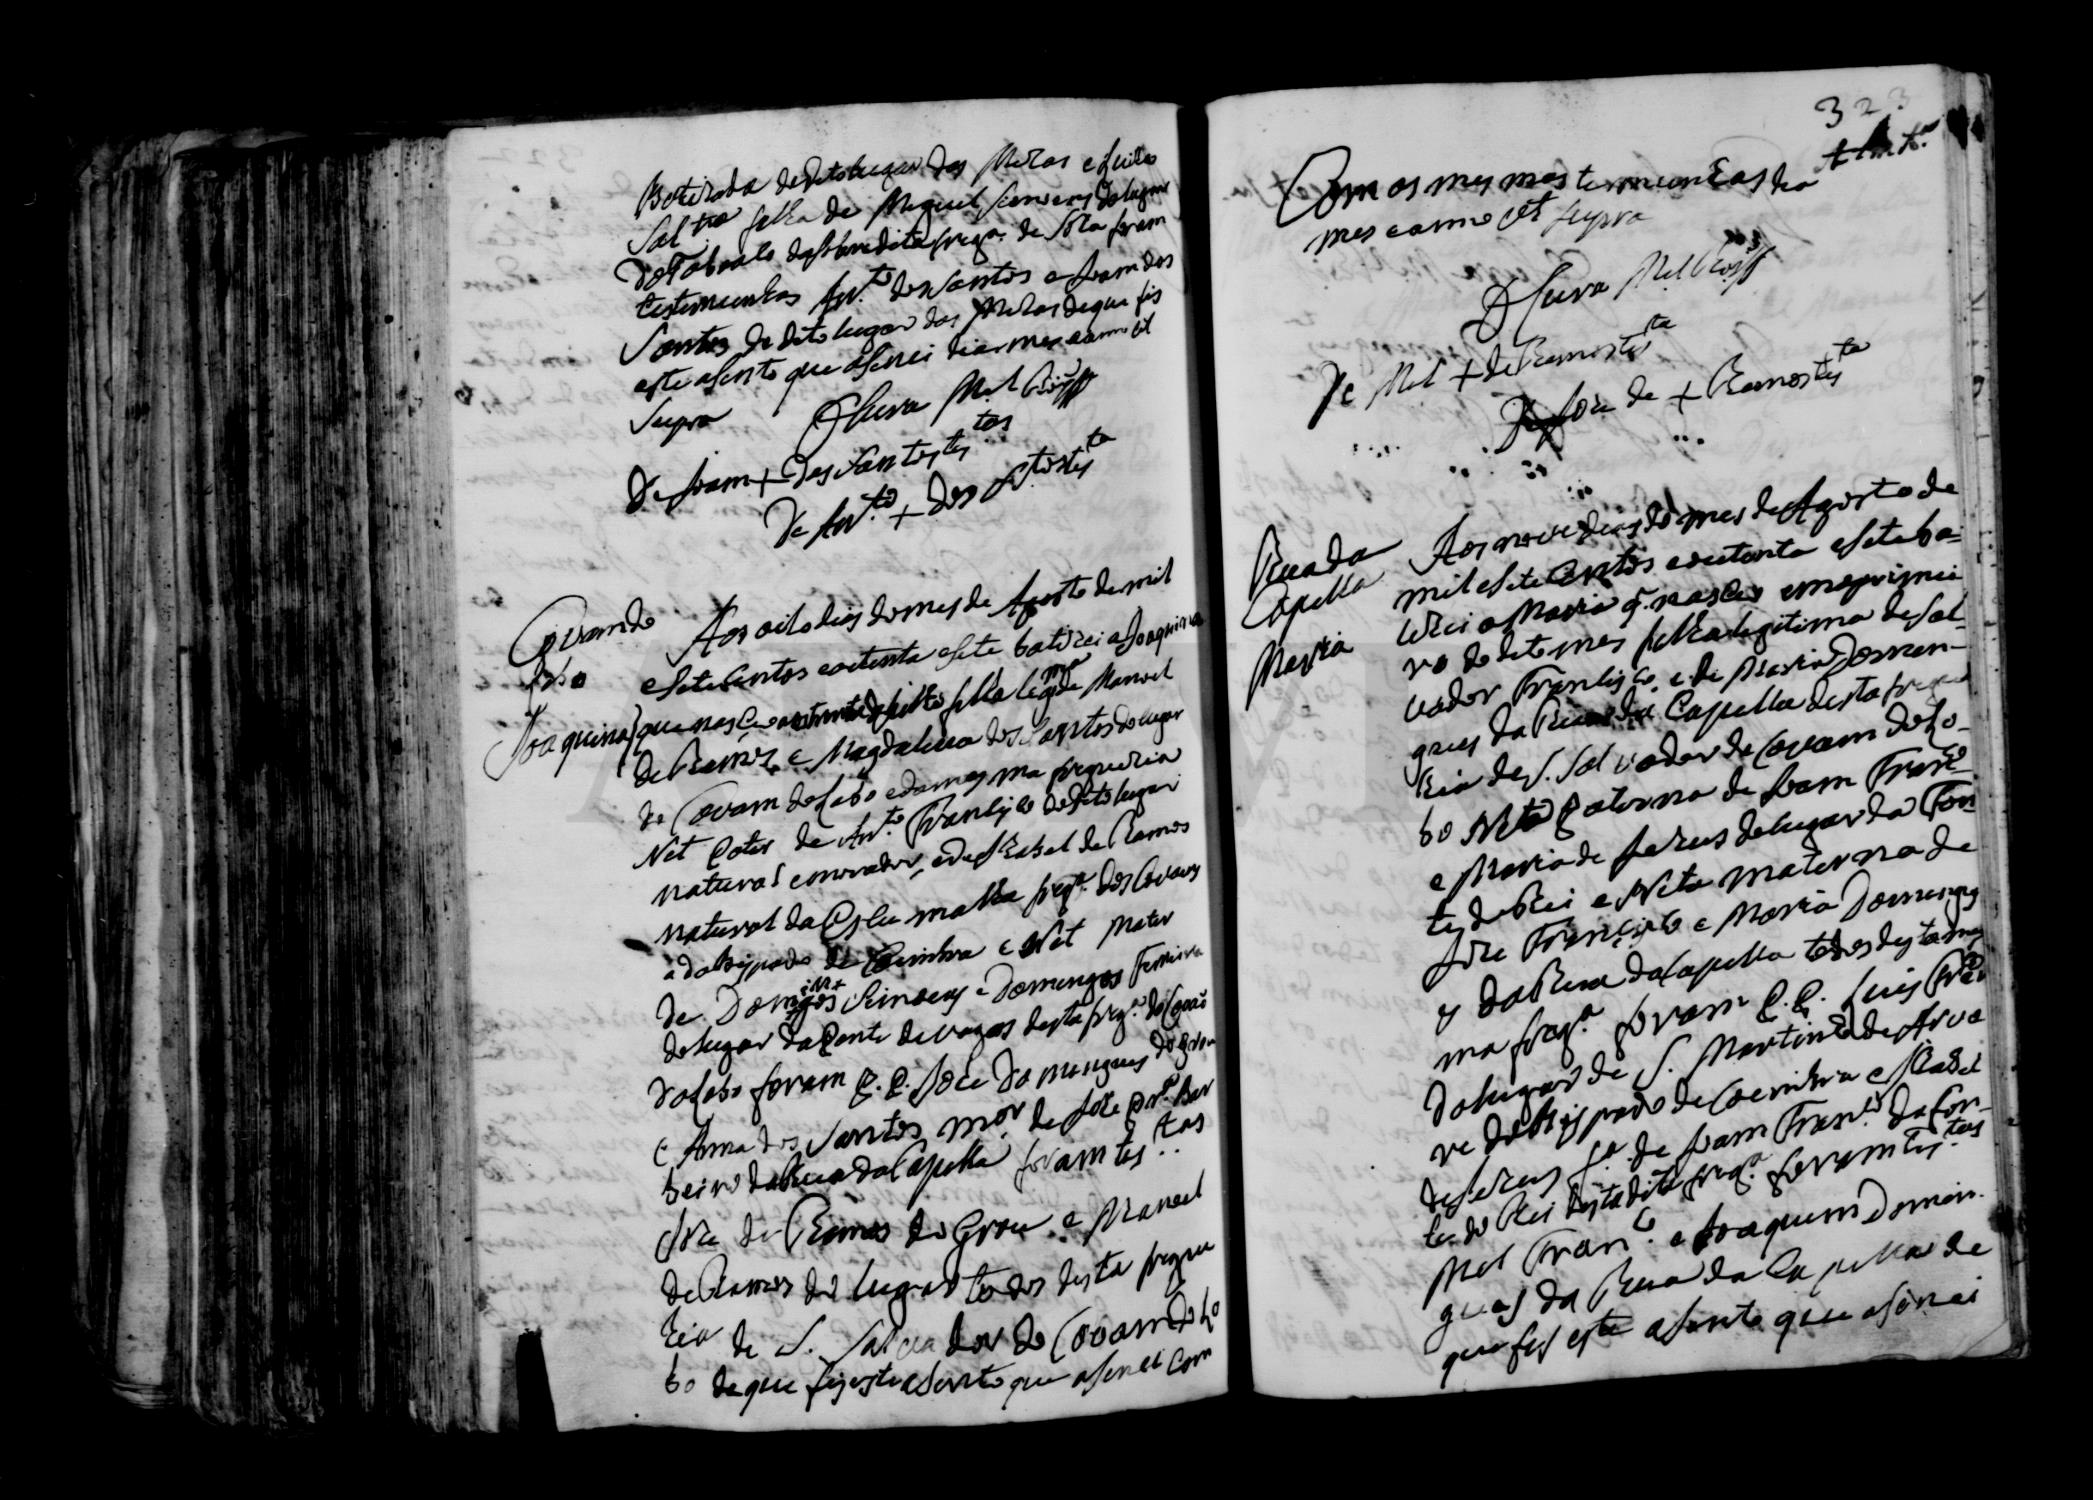 de dito lugar das Meroas e
filha de Miguel Simoens do lugar
do Taboalo da sobredita fregª. de foram
testemunhas Antº. dos Santos e Joam dos
Santos do dito lugar das Meroas de que fis
este asento que asinei dia mes e anno ut
Supra O Cura Mel
De Joam + dos Santos tas
De Antº + dos Stos testª
Covam do
Lobo
Joaquina
Aos oito dias do mes de Agosto de mil
e Setecentos e oitenta e Sete batizei a Joaquina
que nasceo filha legma de Manoel
de Ramos e Magdalena dos Santos do lugar
de Covam do Lobo e da mesma freguezia
Net Pater de Antº. Francisco do dito lugar
natural e morador, e de Izabel de Ramos
natural da fregª. dos Covoens
do bispado de Coimbra e Net Mater
de Domingos Simoens e Domingas Ferreira
do lugar da Ponte de vagos desta fregª. do Covão
do Lobo foram P.P. Joze Domingues do Grou
e Anna dos Santos mor. de Joze Bar
beiro da Rua da Capella foram tes..tas
Joze de Ramos do Grou e Manoel
de Ramos do lugar todos desta fregue
zia de S. Salvador do Covam do Lo
bo de que fis este asento que asinei Com
323
Com as mesmas termunhas dia
mes e anno ut supra
O Cura Mel
De Mel + de Ramos testª
Joze de + Ramos testª
Rua da
Capella
Maria
Aos nove dias do mes de Agosto de
mil e sete Centos e outenta e sete ba=
tizei a Maria q. nasceo em o primei
ro do dito mes filha legitima de Sal=
vador Francisco, e de Maria Domin=
gues da Rua da Capella desta fregue
zia de S. Salvador de Covam do Lo-
bo Neta Paterna de Joam Franco
e Maria de Jezus do lugar da Fon
te do Rei e Neta materna de
Joze Francisco e Maria Domingues
da Rua da Capella todos desta mes
ma fregª foram P.P. Luis Franco
do lugar de S. Martinho de Arvo
re do Bispado de Coimbra e Izabel
de Jezus fª. de Joam Franco. da Fon-
te do Rei desta dita fregª. foram tes.tas
Mel Franco e Joaquim Domin-
gues da Rua da Capella de
que fis este asento que asinei